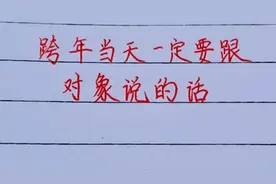 跨年当天一定要跟
对象说的话